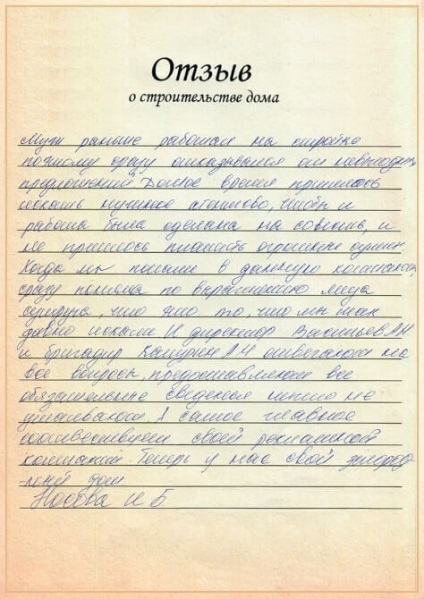 Отзыв
о строительстве дома
Муж раньше работал на стройке
поэтому сразу отказывался от невыгодных
предложений. Долгое время пришлось
искать нужное агентство, чтобы и
работа была сделана на совесть, и
не пришлось платить огромные суммы.
Когда мы попали в данную компанию,
сразу поняла по выражению лица
супруга, что это то, что мы так
давно искали. И директор Васильев АН
и бригадир АЧ отвечают на
все вопросы, предоставляют все
обязательные сведения ничего не
утаивают. А самое главное
соответствуют своей
компании. Теперь у нас свой загород-
ный дом
Носова И Б